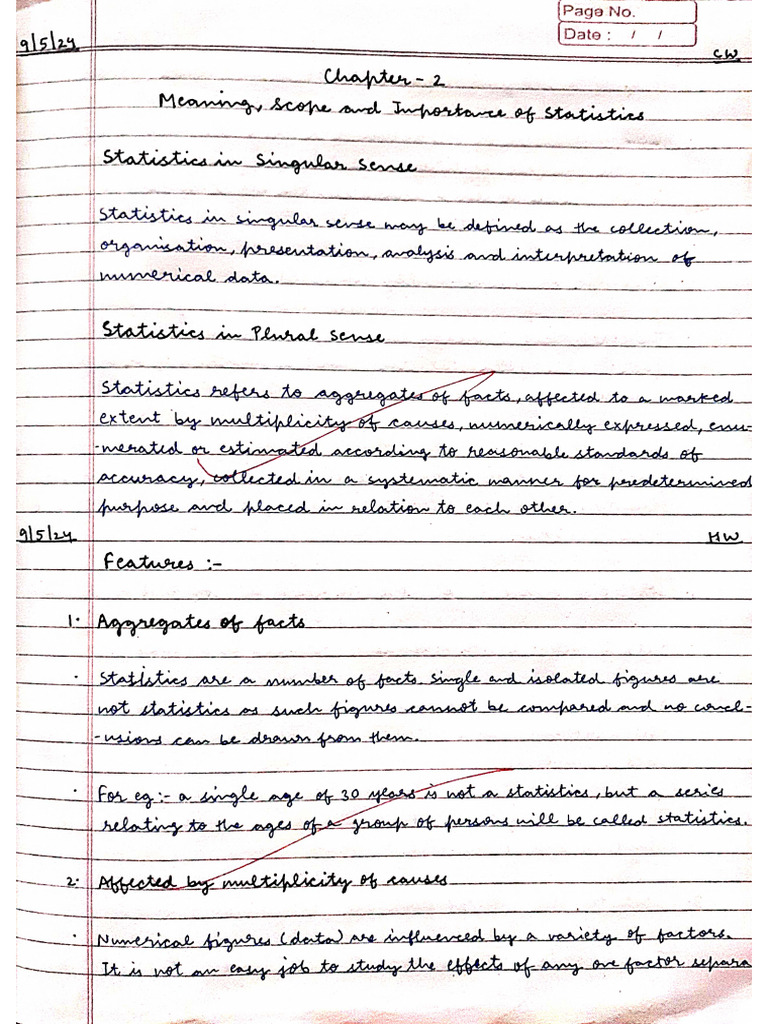 Page No.
Date : / /
9/5/24
CW
Chapter - 2
Meaning, Scope and Importance of Statistics
Statistics in Singular Sense
Statistics in singular sense may be defined as the collection,
organisation, presentation, analysis and interpretation of
numerical data.
Statistics in Plural Sense
Statistics refers to aggregates of facts, affected to a marked
extent by multiplicity of causes, numerically expressed, enu-
-merated or estimated according to reasonable standards of
accuracy, collected in a systematic manner for predetermined
purpose and placed in relation to each other.
9/5/24
HW
Features :-
1. Aggregates of facts
· Statistics are a number of facts. Single and isolated figures are
not statistics as such figures cannot be compared and no concl-
-usions can be drawn from them.
· For eg :- a single age of 30 years is not a statistics, but a series
relating to the ages of a group of persons will be called statistics.
2. Affected by multiplicity of causes
· Numerical figures (data) are influenced by a variety of factors.
It is not an easy job to study the effects of any one factor separa